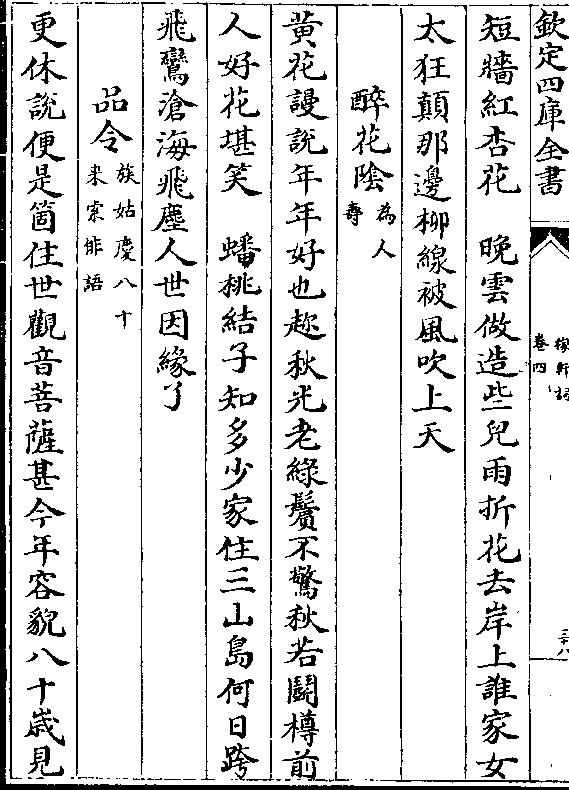 欽定四庫全書
稼軒詞
卷四
三十八
短牆紅杏花　晚雲做造些兒雨折花去岸上誰家女
太狂顛那邊柳線被風吹上天
醉花隂為人壽
黄花謾說年年好也趂秋光老綠鬢不驚秋若鬭樽前
人好花堪笑　蟠桃結子知多少家住三山島何日跨
飛鸞滄海飛塵人世因緣了
品令族姑慶八十来索俳語
更休說便是箇住世觀音菩薩甚今年容貌八十歳見